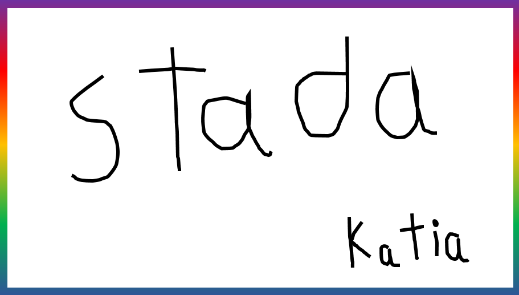 stada
Katia